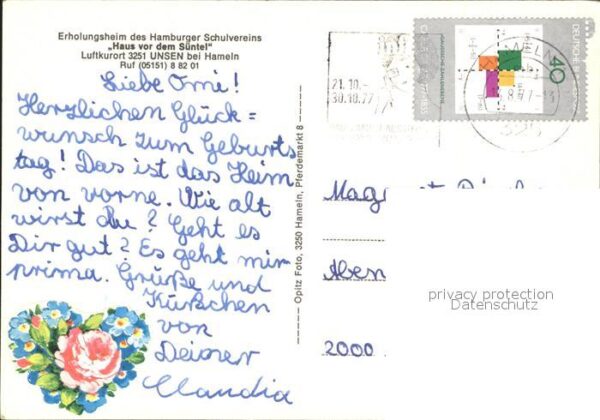 Erholungsheim des Hamburger Schulvereins
„Haus vor dem Süntel"
Luftkurort 3251 UNSEN bei Hameln
Ruf (05151) 8 82 01
Liebe Omi!
Herzlichen Glück=
wunsch zum Geburts
tag! Das ist das Heim
von vorne. Wie alt
wirst du? Geht es
Dir gut? Es geht mir
prima. Grüße und
Küßchen
von
Deiner
Claudia
Opitz Foto, 3250 Hameln, Pferdemarkt 8
21.10.-
30.10.77
40
Mag
Aben
2000
privacy protection
Datenschutz